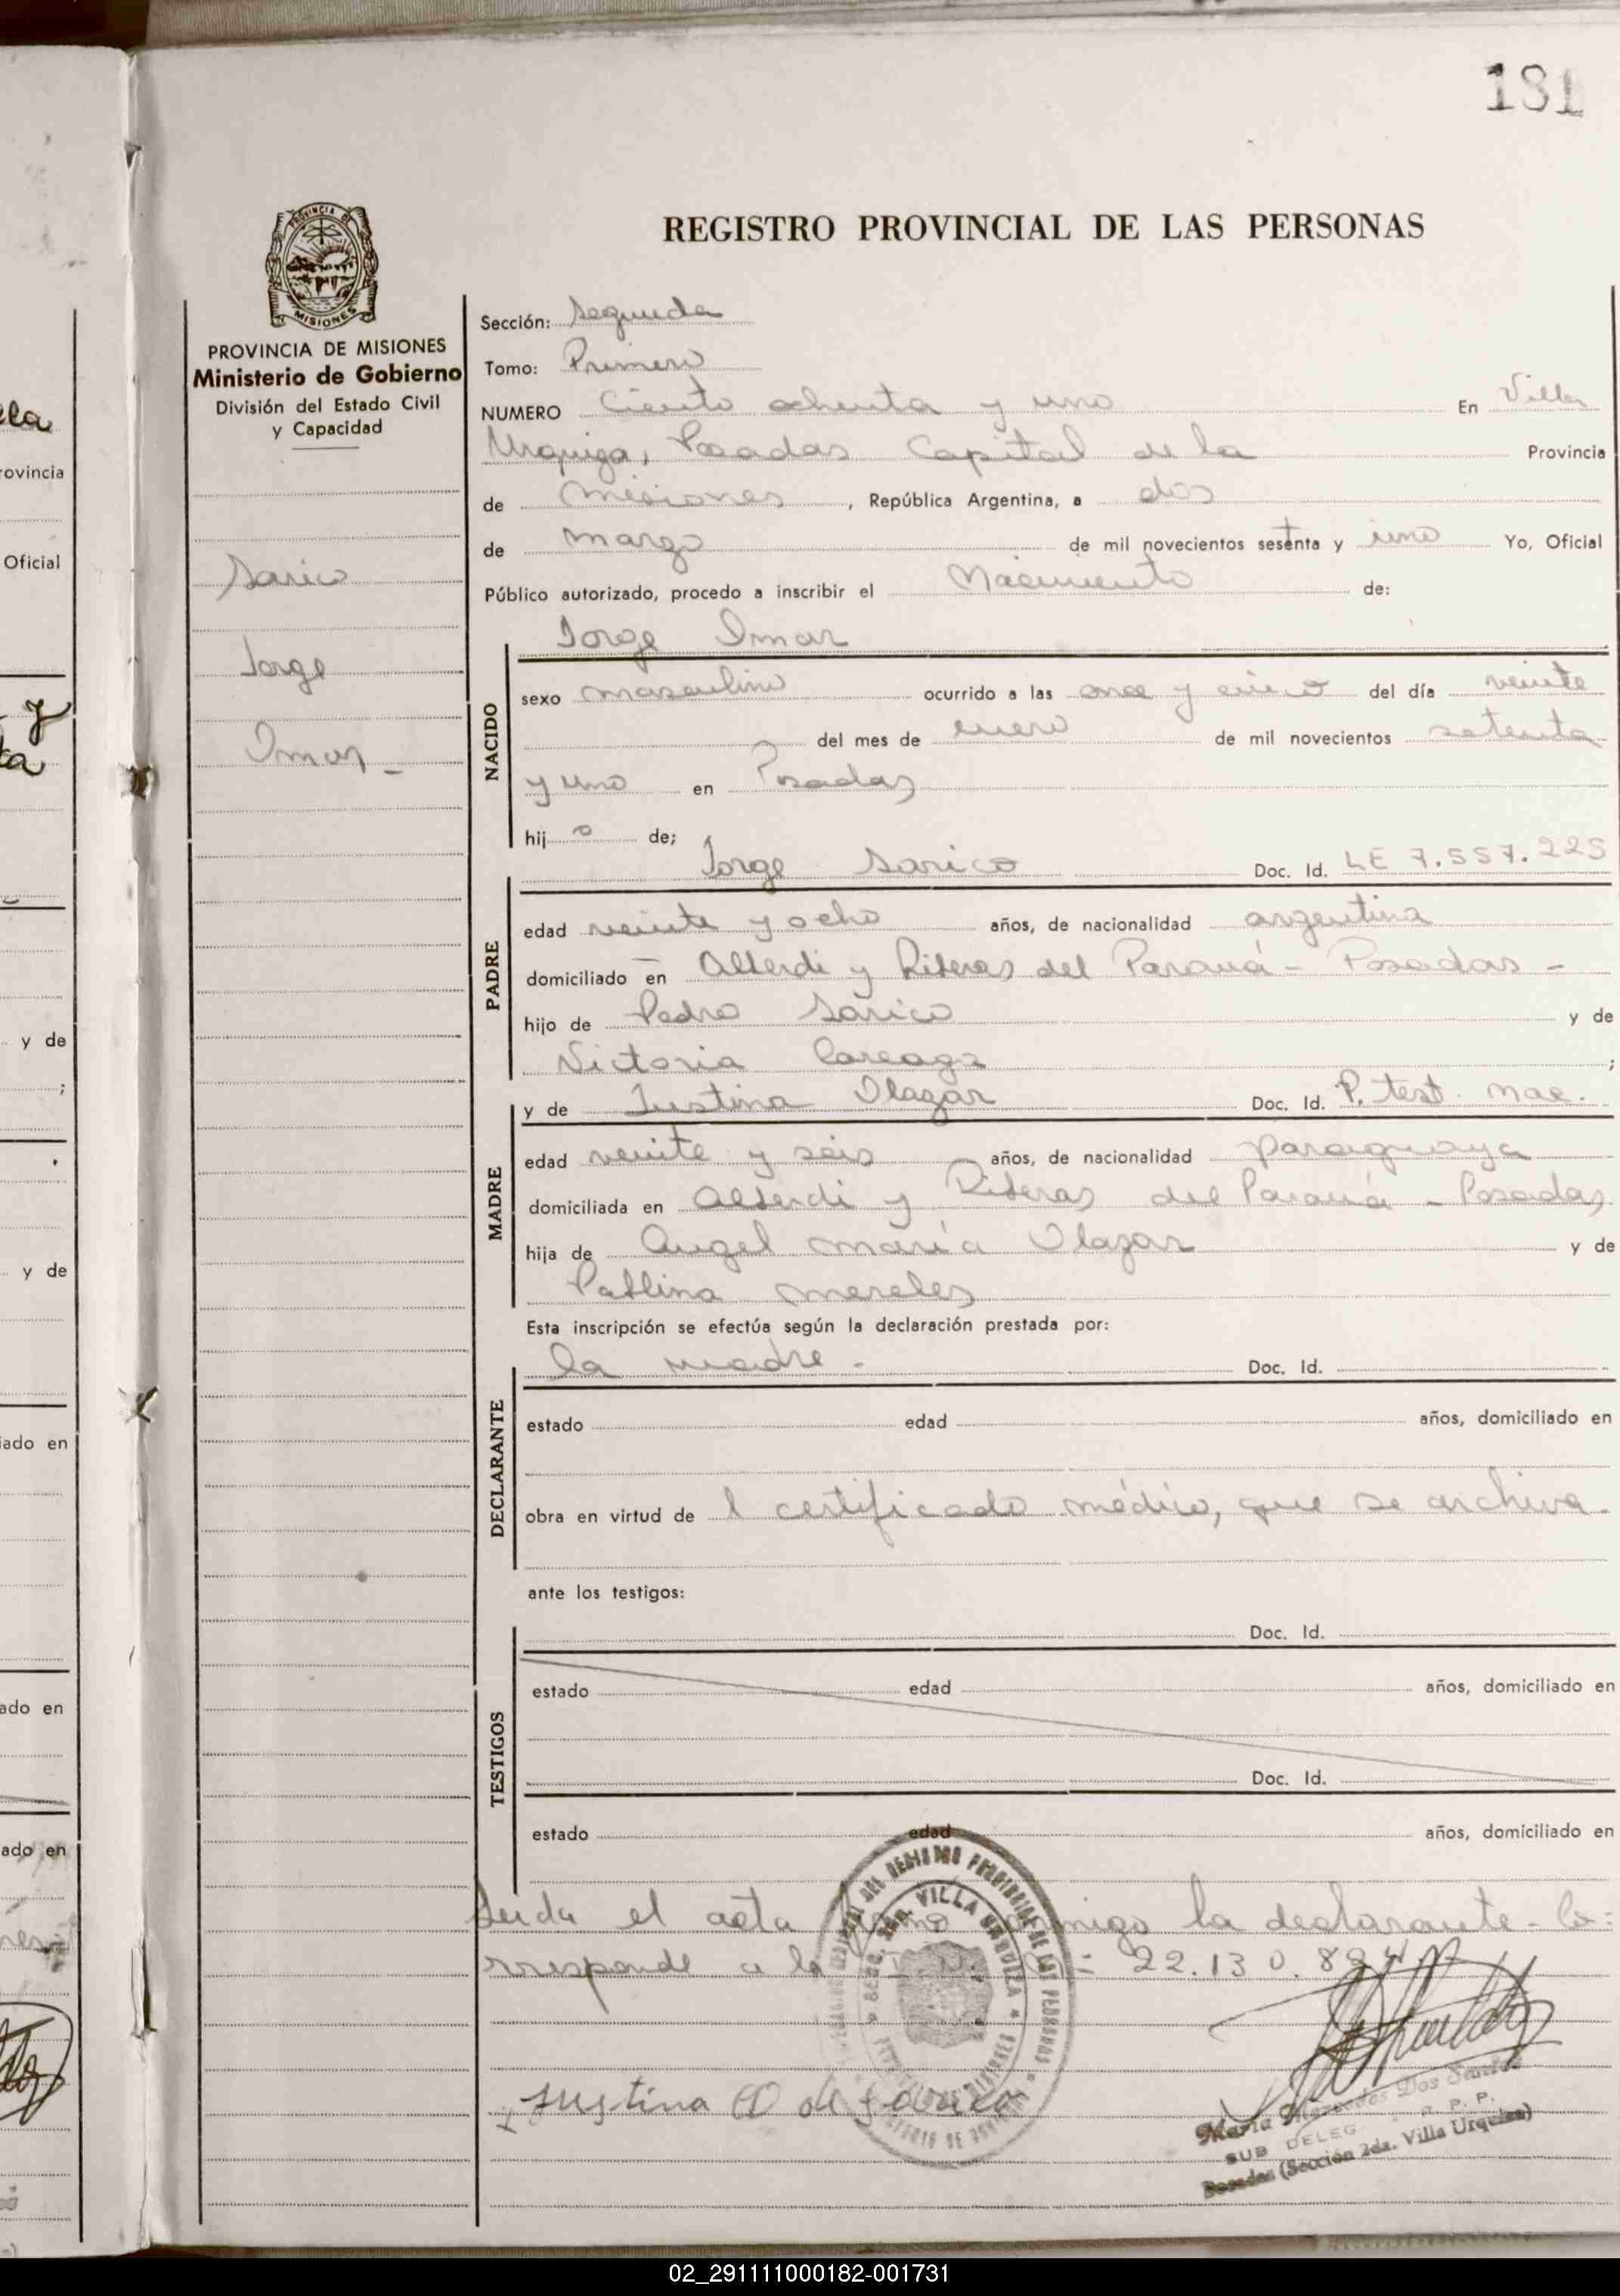 181
REGISTRO PROVINCIAL DE LAS PERSONAS
PROVINCIA DE
MISIONES
PROVINCIA DE MISIONES
Ministerio de Gobierno
División del Estado Civil
y Capacidad
Sarico
Jorge
Omar -
Sección: Segunda
Tomo: Primero
NUMERO Ciento ochenta y uno En Villa
Urquiza, Posadas Capital de la Provincia
de Misiones, República Argentina, a dos
de marzo de mil novecientos sesenta y uno Yo, Oficial
Público autorizado, procedo a inscribir el Nacimiento de:
Jorge Omar
NACIDO
sexo masculino ocurrido a las once y cinco del día veinte
del mes de enero de mil novecientos setenta
y uno en Posadas
hij o de;
Jorge Sarico Doc. Id. LE 7.557.225
PADRE
edad veinte y ocho años, de nacionalidad argentina
domiciliado en Alberdi y Riberas del Paraná - Posadas -
hijo de Pedro Sarico y de
Victoria Careaga ;
y de Justina Olazar Doc. Id. P. test. nac.
MADRE
edad veinte y seis años, de nacionalidad paraguaya
domiciliada en Alberdi y Riberas del Paraná - Posadas
hija de Angel María Olazar y de
Pablina Mereles
Esta inscripción se efectúa según la declaración prestada por:
la madre - Doc. Id.
DECLARANTE
estado edad años, domiciliado en
obra en virtud de l certificado médico, que se archiva.
ante los testigos:
Doc. Id.
TESTIGOS
estado edad años, domiciliado en
Doc. Id.
estado edad años, domiciliado en
Leida el acta firma conmigo la declarante - Co=
rresponde a la = 22.130.894
VILLA URQUIZA
Justina O de Sarico
Maria Mercedes Dos Santos
SUB DELEG. R. P. P.
Posadas (Sección 2da. Villa Urquiza)
ela
rovincia
Oficial
y
a
y de
;
y de
iado en
ado en
ado en
02_291111000182-001731